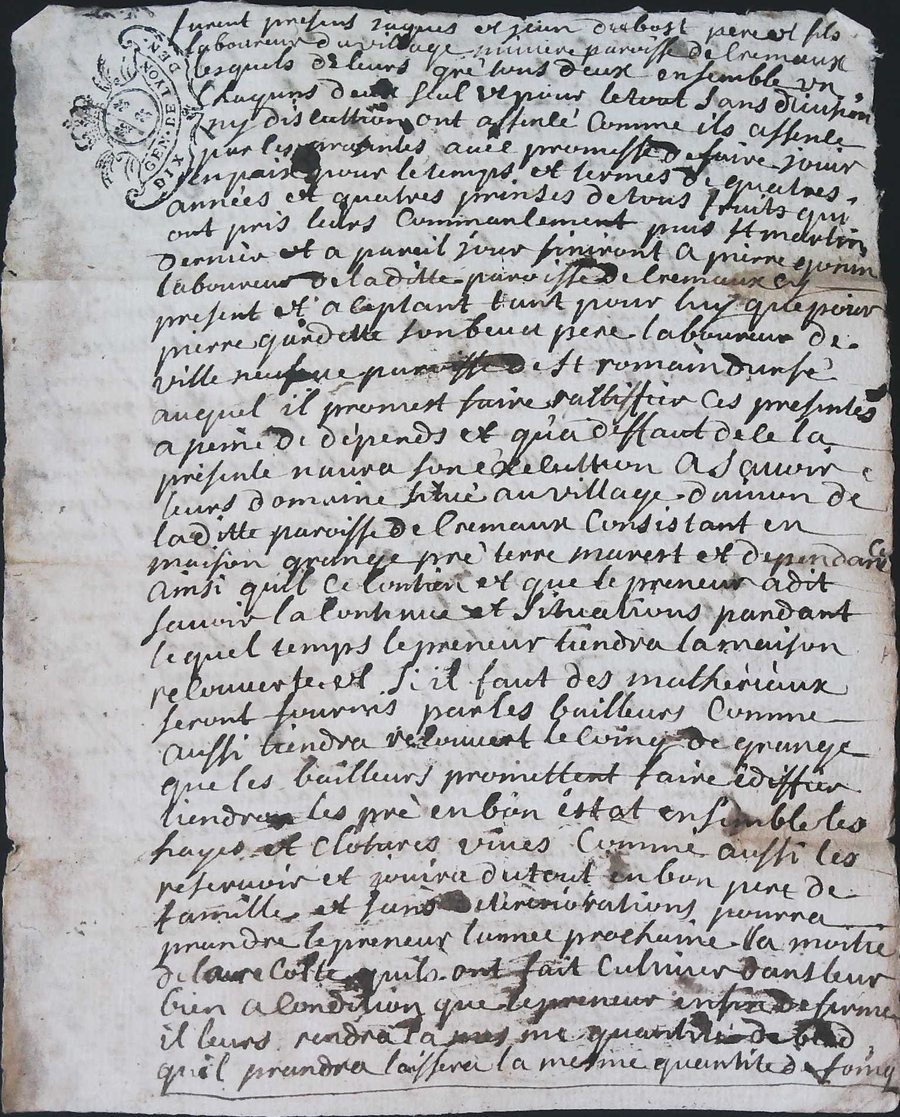 GEN. DE LION
DIX DEN.
furent presens jaques et jean dubost pere et fils
laboureur du village paroisse de Cremaux
lesquels de leurs gré tous deux ensemble un
chaquns deux seul et pour le tout sans division
ny discuttion ont assensé comme ils assense
par les presentes avec promesse de faire jouir
en paix pour le temps et termes de quatres
années et quatres prinses de tous fruits qui
ont pris leurs commanlement puis st martin
dernier et a pareil jour finiront a pierre gonin
laboureur de laditte paroisse de Cremaux cy
present et aceptant tant pour luy que pour
pierre gardette son beau pere laboureur de
ville neufve paroisse de st romain durfé
auquel il promest faire rattiffier ces presentes
a peine de dépends et qua deffaut de ce la
présente naura son éxecuttion a sauoir
leurs domaine situé au village daimon de
laditte paroisse de Cremaux Consistant en
maison grange pré terre marest et dependance
ainsi quil ce contien et que le preneur a dit
savoir la Contenue et situations pandant
le quel temps le preneur tiendra la maison
recouverte et si il faut des mathériaux
seront fournis par les bailleurs Comme
aussi tiendra recouvert le coing de grange
que les bailleurs promettent faire édiffier
tiendra les pré en bon éstat ensemble les
hayes et clotures vives Comme aussi les
reservoir et jouira du tout en bon pere de
famille et sans deteriorations pourra
prandre le preneur lannée prochaine la moitié
de quils ont fait cultiver dans leur
bien a condition que le preneur en fin de ferme
il leurs rendra la mesme quantité de bled
quil prandra laissera la mesme quantité de foing